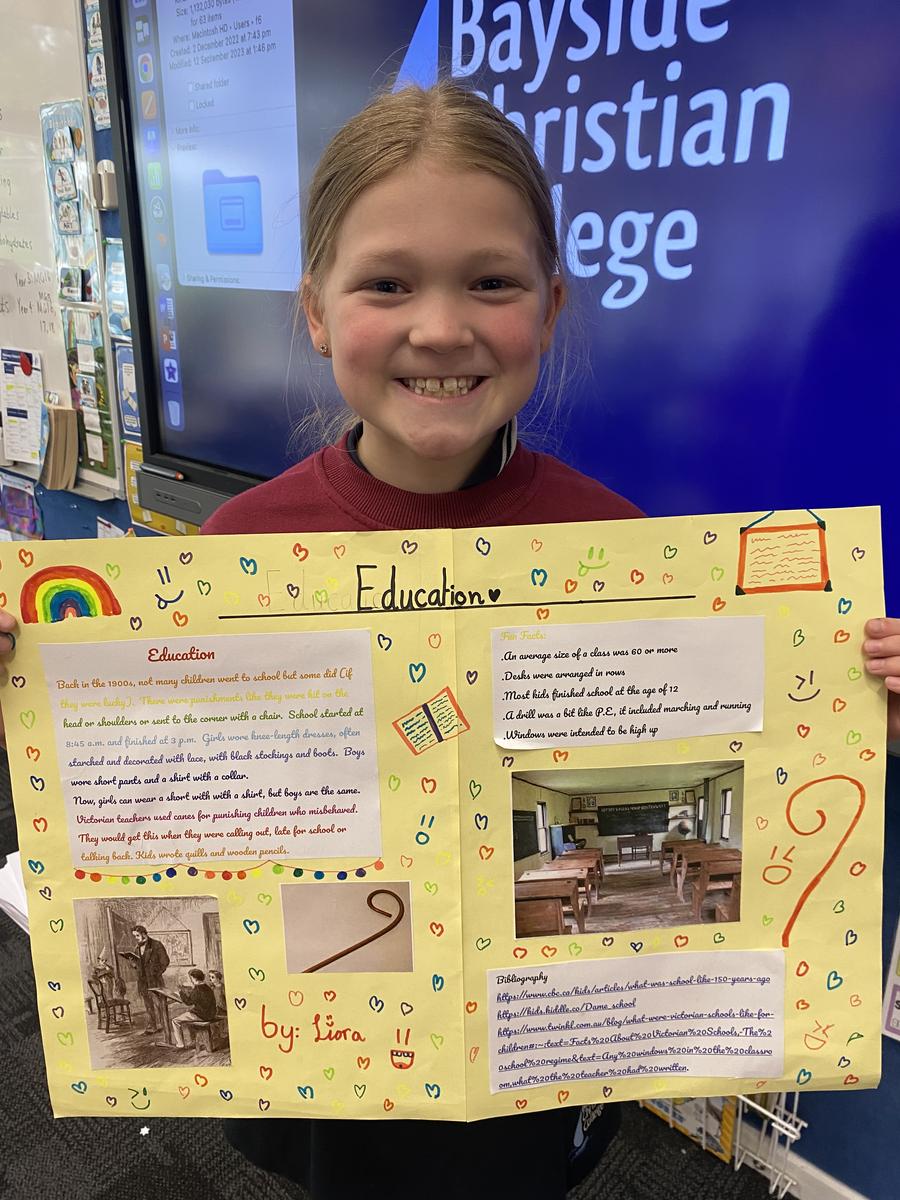 Size: 1,132,030 bytes
for 63 items
Where: Macintosh HD • Users • f6
Created: 2 December 2022 at 7:43 pm
Modified: 12 September 2023 at 1:46 pm
Shared folder
Locked
More Info:
Preview:
Sharing & Permissions:
Bayside
Christian
lege
Education
Education
Back in the 1900s, not many children went to school but some did (if
they were lucky). There were punishments like they were hit on the
head or shoulders or sent to the corner with a chair. School started at
8:45 a.m. and finished at 3 p.m. Girls wore knee-length dresses, often
starched and decorated with lace, with black stockings and boots. Boys
wore short pants and a shirt with a collar.
Now, girls can wear a short with with a shirt, but boys are the same.
Victorian teachers used canes for punishing children who misbehaved.
They would get this when they were calling out, late for school or
talking back. Kids wrote quills and wooden pencils.
by: Liora
Fun Facts:
.An average size of a class was 60 or more
.Desks were arranged in rows
.Most kids finished school at the age of 12
.A drill was a bit like P.E, it included marching and running
.Windows were intended to be high up
Bibliography
https://www.cbc.ca/kids/articles/what-was-school-like-150-years-ago
https://kids.kiddle.co/Dame_school
https://www.twinkl.com.au/blog/what-were-victorian-schools-like-for-
children#:~:text=Facts%20About%20Victorian%20Schools,-The%2
0school%20regime&text=Any%20windows%20in%20the%20classro
om,what%20the%20teacher%20had%20written.